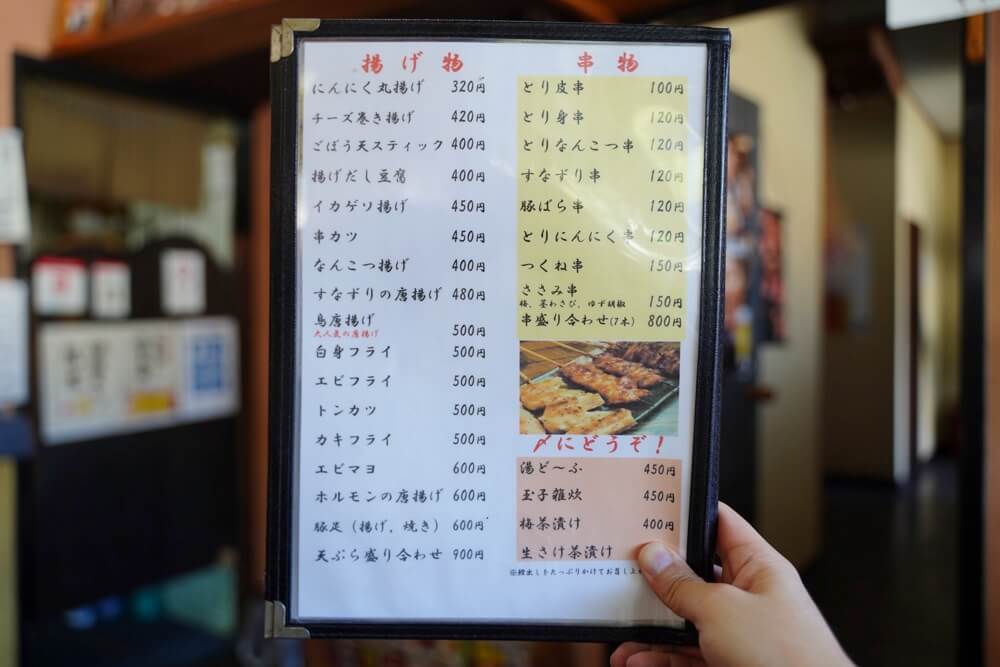 揚げ物
にんにく丸揚げ 320円
チーズ巻き揚げ 420円
ごぼう天スティック 400円
揚げだし豆腐 400円
イカゲソ揚げ 450円
串カツ 450円
なんこつ揚げ 400円
すなずりの唐揚げ 480円
鳥唐揚げ 500円
大人気の唐揚げ
白身フライ 500円
エビフライ 500円
トンカツ 500円
カキフライ 500円
エビマヨ 600円
ホルモンの唐揚げ 600円
豚足(揚げ、焼き) 600円
天ぷら盛り合わせ 900円
串物
とり皮串 100円
とり身串 120円
とりなんこつ串 120円
すなずり串 120円
豚ばら串 120円
とりにんにく串 120円
つくね串 150円
ささみ串 150円
梅、茎わさび、ゆず胡椒
串盛り合わせ(7本) 800円
〆にどうぞ!
湯ど〜ふ 450円
玉子雑炊 450円
梅茶漬け 400円
生さけ茶漬け